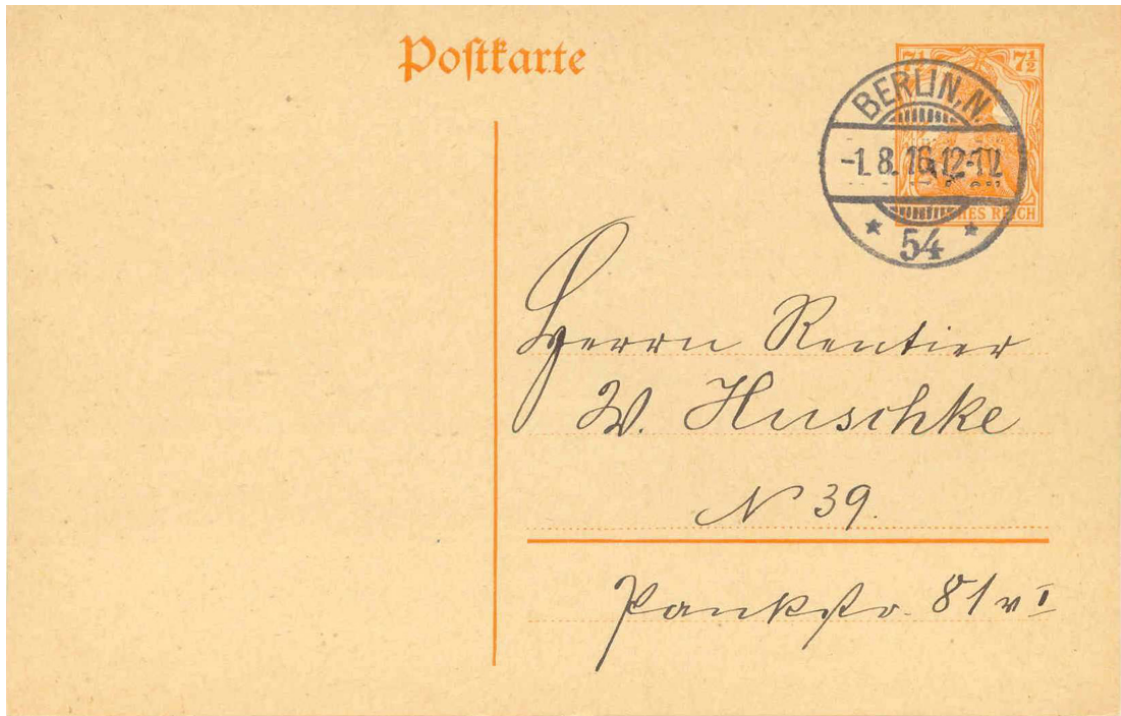 Postkarte
7½ 7½
BERLIN, N.
-1.8.16.12-1
* 54 *
REICH
Herrn Rentier
W. Huschke
N 39.
Pankstr. 81 v I